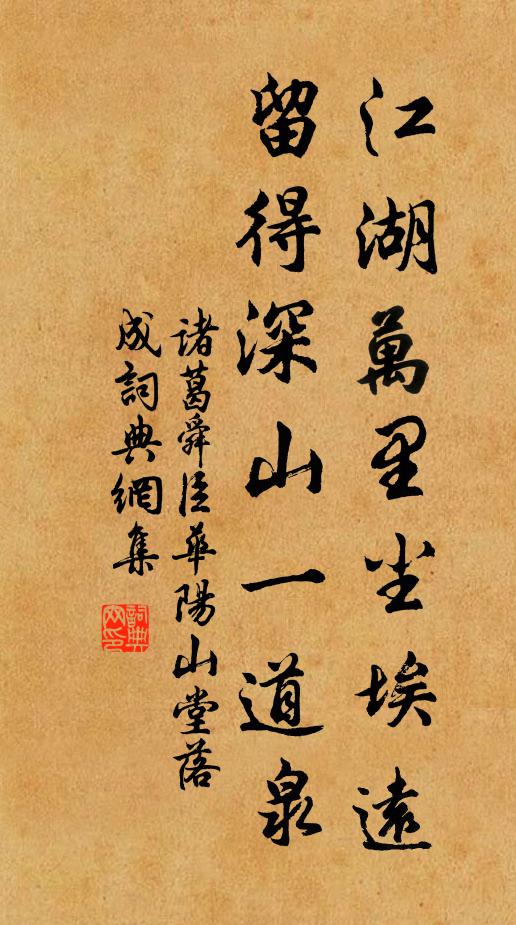 江湖萬里尘埃遠
留得深山一道泉
諸葛舜臣華陽山堂落
成詞典網集
詞典网印